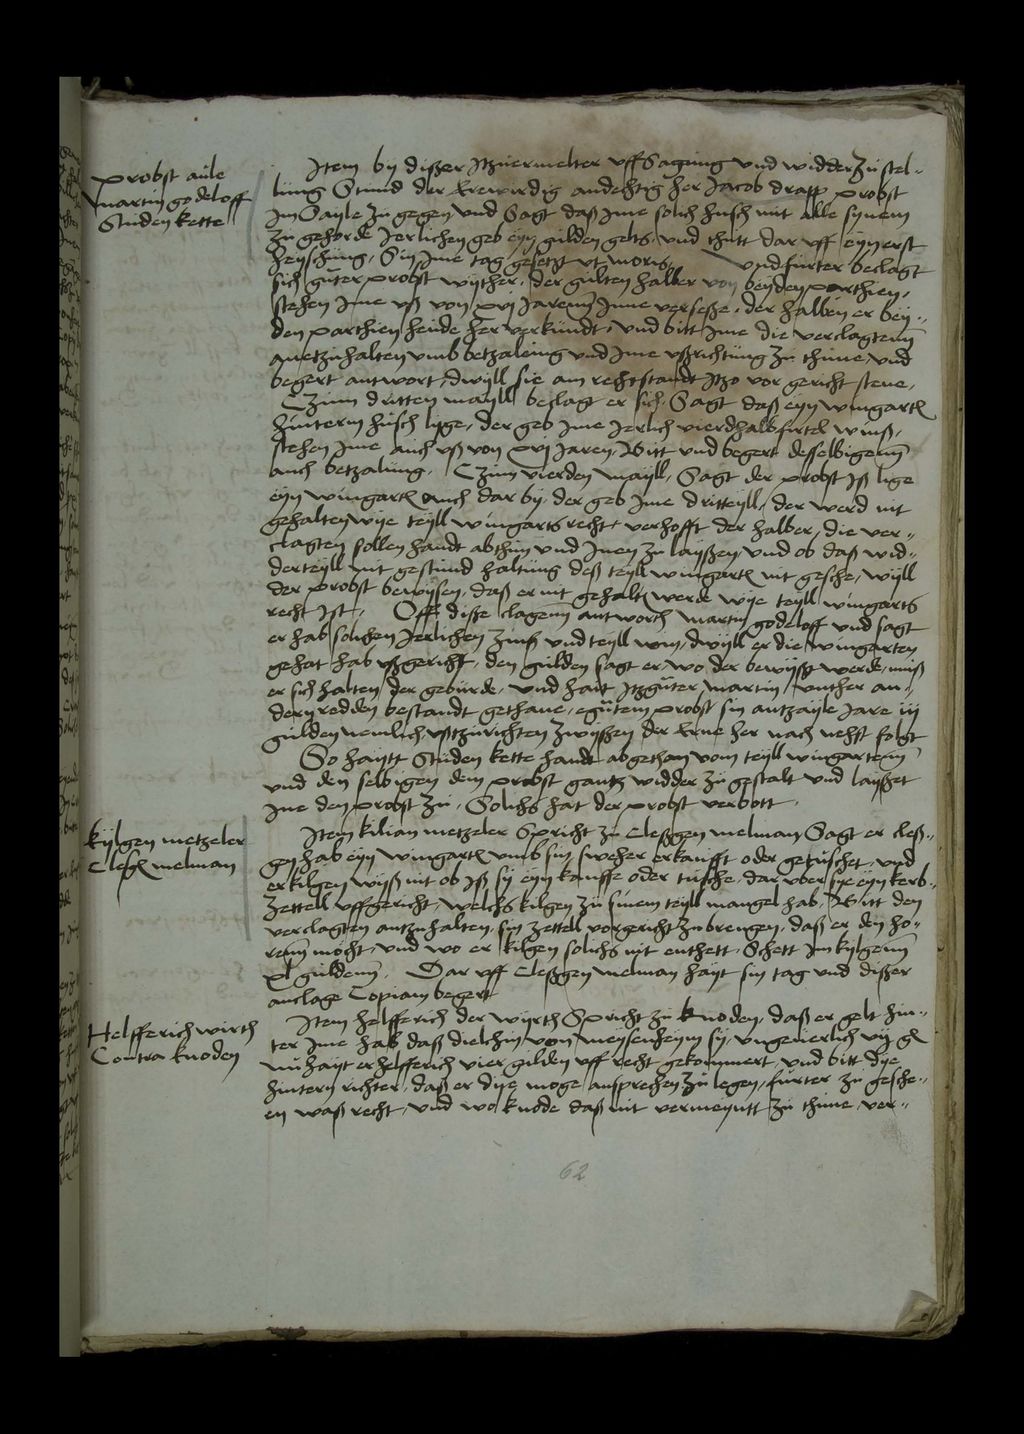 probst aule
Martin godeloff
Studen kette
Item by disszer Itzuermelter uff Sagung und widderzustel-
lung Stund der Erewirdig andechtig her Jacob probst
Im Sayle zu gegen und Sagt daß Ime solich husch mit alle synem
zu gehorde Jerlichen geb eyn gulden gelts und thutt dar uff eyn erst
heyschung. Sin Ime tag gesetzt ut moris. und furter beclagt
sich guter probst wyther, der gulten halber von beyden parthien,
stehen Ime uß von xvj Jarenn Ime versesße, der halben er bey-
den parthien heude her verkundt, und bitt Ime die verclagtenn
anetzuhalten umb betzalung und Ime ußrichtung zu thune, und
begert antwort, dwyll sie am rechtstandt Itzo vor gericht stene,
Czum dritten mayll beclagt er sich, Sagt daß eyn wingartt
hinterm husch lyge, der geb Ime Jerlich vierdhalb firtel winß,
stehen Ime auch uß von xvj Jaren, Bitt und begert desselbigenn
auch betzalung. Czum vierden mayll, Sagt der probst Iß lige
eyn wingartt auch dar by, der geb Ime dritteyll, der werd nit
gehalten wye teyll wingarts recht, verhofft der halber, die ver-
clagten sollen handt abthun und Inen zu laysszen, und ob daß wid-
derteyll nit gestund haltung deß teyll wingartt nit geschee, wyll
der probst bewysen, daß er nit gehaltt werde wye teyll wingarts
recht Ist. Off disse clagenn antwortt Martin godeloff und sagt
er hab solichen Jerlichen zinß und teyll win, dwyll er die wingarten
gehat hab ußgericht, den gulden sagt er, wo der bewysst werde, muß
er sich halten der geburde, und hait Itzguter Martin, unther an-
dern redden bestandt gethane, egutem probst sin antzayle Jare iij
gulden nemlich ußzurichten zwyszen der Erne her nach nehst folgt
So haytt Studen kette handt abgethan vom teyll wingartenn
und den selbigen dem probst gantz widder zu gestalt und laysszet
Ime den probst zu. Solichs hat der probst verbott.
kylgen metzeler
Cleßgen melman
Item kilian metzeler Spricht zu Cleßgen melman Sagt er cleß-
gen hab eyn wingartt umb sin sweher erkaufft oder getuschet, und
er kilgen wyß nit ob Iß sy eyn kauffe oder tusche, dar uber sye eyn kerb-
zettell uffgericht, welchs kilgen zu sinem teyll mangel hab, Bitt den
verclagten antzuhalten, sin zettell vor gericht zu brengen, daß er den ho-
renn mocht, und wo er kilgen solichs nit enthett, Schett Im kylgenn
xl guldenn. Dar uff Cleßgen melman hayt sin tag und disszer
anclage Copiam begert
Helfferich wirth
Contra knoden
Item helfferich der wyrth Spricht zu knoden, daß er gelt hin-
ter Ime hab daß dielchin von meysenheym sy, ungeuerlich vij gl
nu hayt er helfferich vier gulden uff recht gekommert und bitt dye
hintern richter, daß er dye moge ansprechen zu legen, furter zu gesche-
en waß recht, und wo knode daß nit vermeyntt zu thune, ver-
62